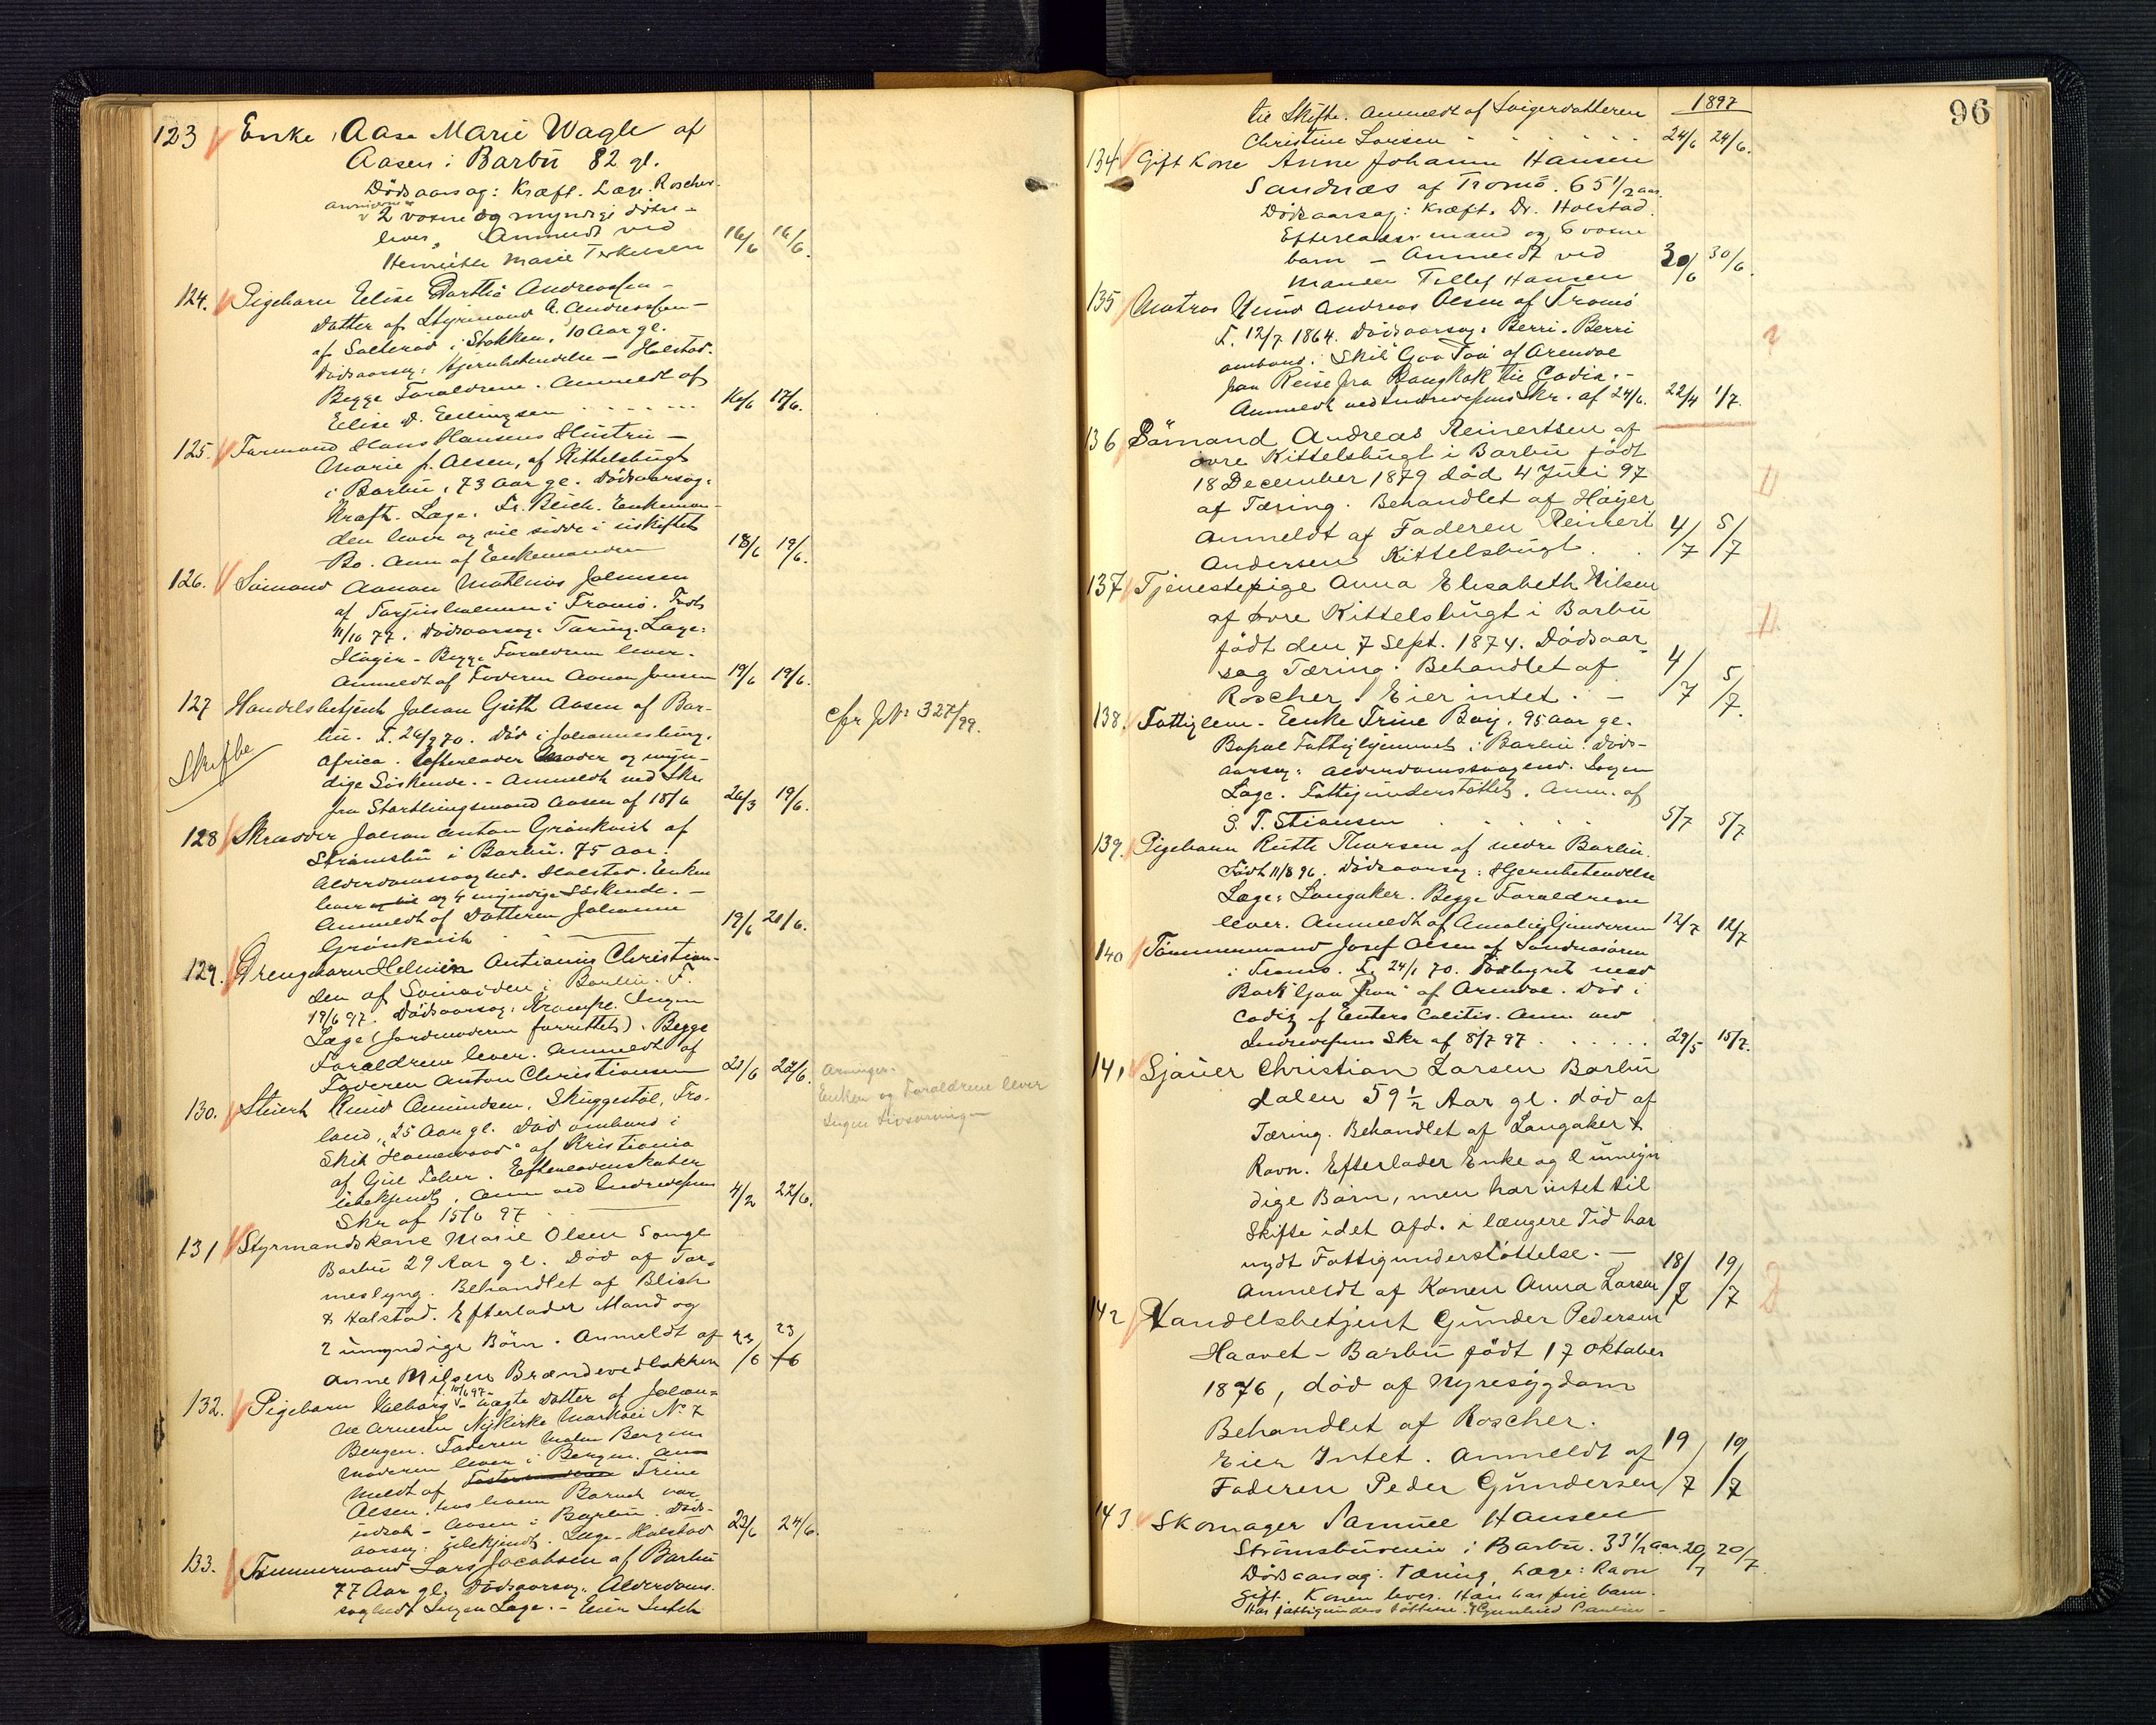 123 Enke Aase Marie Wagle af
Aasen i Barbu 82 gl.
Dödsaarsag: Kræft. Læge. Roscher.
2 voxne og myndige döttre
lever, Anmeldt ved
Henriette Marie Terkelsen 16/6 16/6.
124. Pigebarn Elise Dorthea Andreassen -
Datter af Styrmand A. Andreassen -
af Salteröd i Stokken, 10 Aar gl.
Dödsaarsag: Hjernebetændelse - Holstad.
Begge Forældrene. Anmeldt af
Elise D. Ellingsen 16/6 17/6.
125. Formand Hans Hansens Hustru -
Marie f. Olsen, af Kittelsbugt
i Barbu, 73 Aar gl. Dödsaarsag:
Kræft. Læge: Fr. Blich. Enkeman-
den lever og vil sidde i uskiftet
Bo. Anm af Enkemanden 18/6 19/6.
126. Sömand Aanon Mathias Johnsen
af Torjusholmen i Tromö. Födt
11/10 77. Dödsaarsag: Tæring. Læge:
Höyer - Begge Forældrene lever.
Anmeldt af Faderen Aanon Jensen 19/6 19/6.
127 Handelsbetjent Johan Guth Aasen af Bar-
bu. F. 26/9 70. Död i Johannesburg,
Africa. Efterlader Moder og myn-
dige Söskende. - Anmeldt ved Skr.
fra Stortthingsmand Aasen af 18/6 26/3 19/6.
Skifte
cfr J.N: 327/99.
128 Skrædder Johan Anton Grönkvist af
Strömsbu i Barbu. 75 Aar.
Alderdomssvaghed. Holstad. Enken
lever og 4 myndige Söskende. -
Anmeldt af Datteren Johanne
Grönkvist 19/6 21/6.
129. Drengebarn Helmin Antianus Christian-
sen af Songeröden i Barbu. F.
19/6 97. Dödsaarsag: Krampe. Ingen
Læge (Jordmoderen forrettet). Begge
Forældrene lever. Anmeldt af
Faderen Anton Christiansen 21/6 22/6.
130. Stuert Knud Omundsen, Skuggestöl, Fro-
land, 25 Aar gl. Död ombord i
Skib "Homewood" af Kristiania
af Gul Feber. Efterladenskaber
ubekjendt. Anm ved Indredepms
Skr af 15/6 97 4/2 22/6.
Arvinger:
Enken og Forældrene lever
Ingen Livsarvinger
131 Styrmandskone Marie Olsen Songe
Barbu 29 Aar gl. Död af Tar=
meslyng. Behandlet af Blich
& Holstad. Efterlader Mand og
2 umyndige Börn. Anmeldt af
Anne Nilsen Brændevedbakken 23/6 23/6
132. Pigebarn Valborg f. 10/6 97 - uægte Datter af Johan=
ne Arnesen Nykirke Markvei No 7
Bergen. Faderen Maler Bergen
Moderen lever i Bergen. An-
meldt af Trine
Olsen, hos hvem Barnet var
indsat - Aasen i Barbu. Döds-
aarsag: ubekjendt. Læge - Holstad 23/6 24/6.
133. Tömmermand Lars Jacobsen af Barbu
77 Aar gl. Dödsaarsag: Alderdoms-
svaghed. Ingen Læge. - Eier Intet
1897
96
til Skifte. Anmeldt af Svigerdatteren
Christine Larsen 24/6 24/6.
134 Gift Kone Anne Johanne Hansen
Sandnæs af Tromö. 65 1/2 aar.
Dödsaarsag: Kræft. Dr. Holstad.
Efterlader mand og 6 voxne
barn - Anmeldt ved
Manden Tellef Hansen 30/6 30/6.
135 Matros Knud Andreas Olsen af Tromö
F. 12/7 1864. Dödsaarsag: Berri-Berri
ombord i Skib "Goa Too" af Arendal
paa Reise fra Bangkok til Cadix. -
Anmeldt ved Indredepms Skr. af 24/6. 22/4 1/7.
136 Sömand Andreas Reinertsen af
övre Kittelsbugt i Barbu födt
18 December 1879 död 4 Juli 97
af Tæring. Behandlet af Höyer
Anmeldt af Faderen Reinert
Andersen Kittelsbugt. 4/7 5/7
137 Tjenestepige Anna Elisabeth Nilsen
af övre Kittelsbugt i Barbu
födt den 7 Sept. 1874. Dödsaar-
sag Tæring. Behandlet af
Roscher. Eier intet. - 4/7 5/7.
138. Fattiglem - Enke Trine Boij. 95 aar gl.
Bopæl Fattighjemmet i Barbu. Döds-
aarsag: Alderdomssvaghed. Ingen
Læge. Fattigunderstöttet. Anm. af
S. T. Stiansen 5/7 5/7
139. Pigebarn Ruth Thorsen af nedre Barbu.
Födt 11/8 96. Dödsaarsag: Hjernebetændelse
Læge: Langaker. Begge Forældrene
lever. Anmeldt af Amalie Gundersen 12/7 12/7
140 Tömmermand Josef Olsen af Sandnæsören
i Tromö. F. 24/1 70. Forhyret med
Bark "Goa Too" af Arendal. Död i
Cadiz af Entero Colitis. Anm ved
Indredepms Skr af 8/7 97. 29/5 15/7.
141 Sjauer Christian Larsen Barbu
dalen 59 1/2 Aar gl. död af
Tæring. Behandlet af Langaker &
Ravn. Efterlader Enke og 2 umyn
dige Börn, men har intet til
Skifte idet Afd. i længere Tid har
nydt Fattigunderstöttelse. -
Anmeldt af Konen Anna Larsen 18/7 19/7
142 Handelsbetjent Gunder Pedersen
Haavet - Barbu födt 17 Oktober
1876, död af Nyresygdom
Behandlet af Roscher.
Eier Intet. Anmeldt af
Faderen Peder Gundersen 19/7 19/7
143 Skomager Samuel Hansen
Strömsbuveien i Barbu. 33 1/2 aar 20/7 20/7.
Dödsaarsag: Tæring, Læge: Ravn
Gift. Konen lever. Han har fire barn.